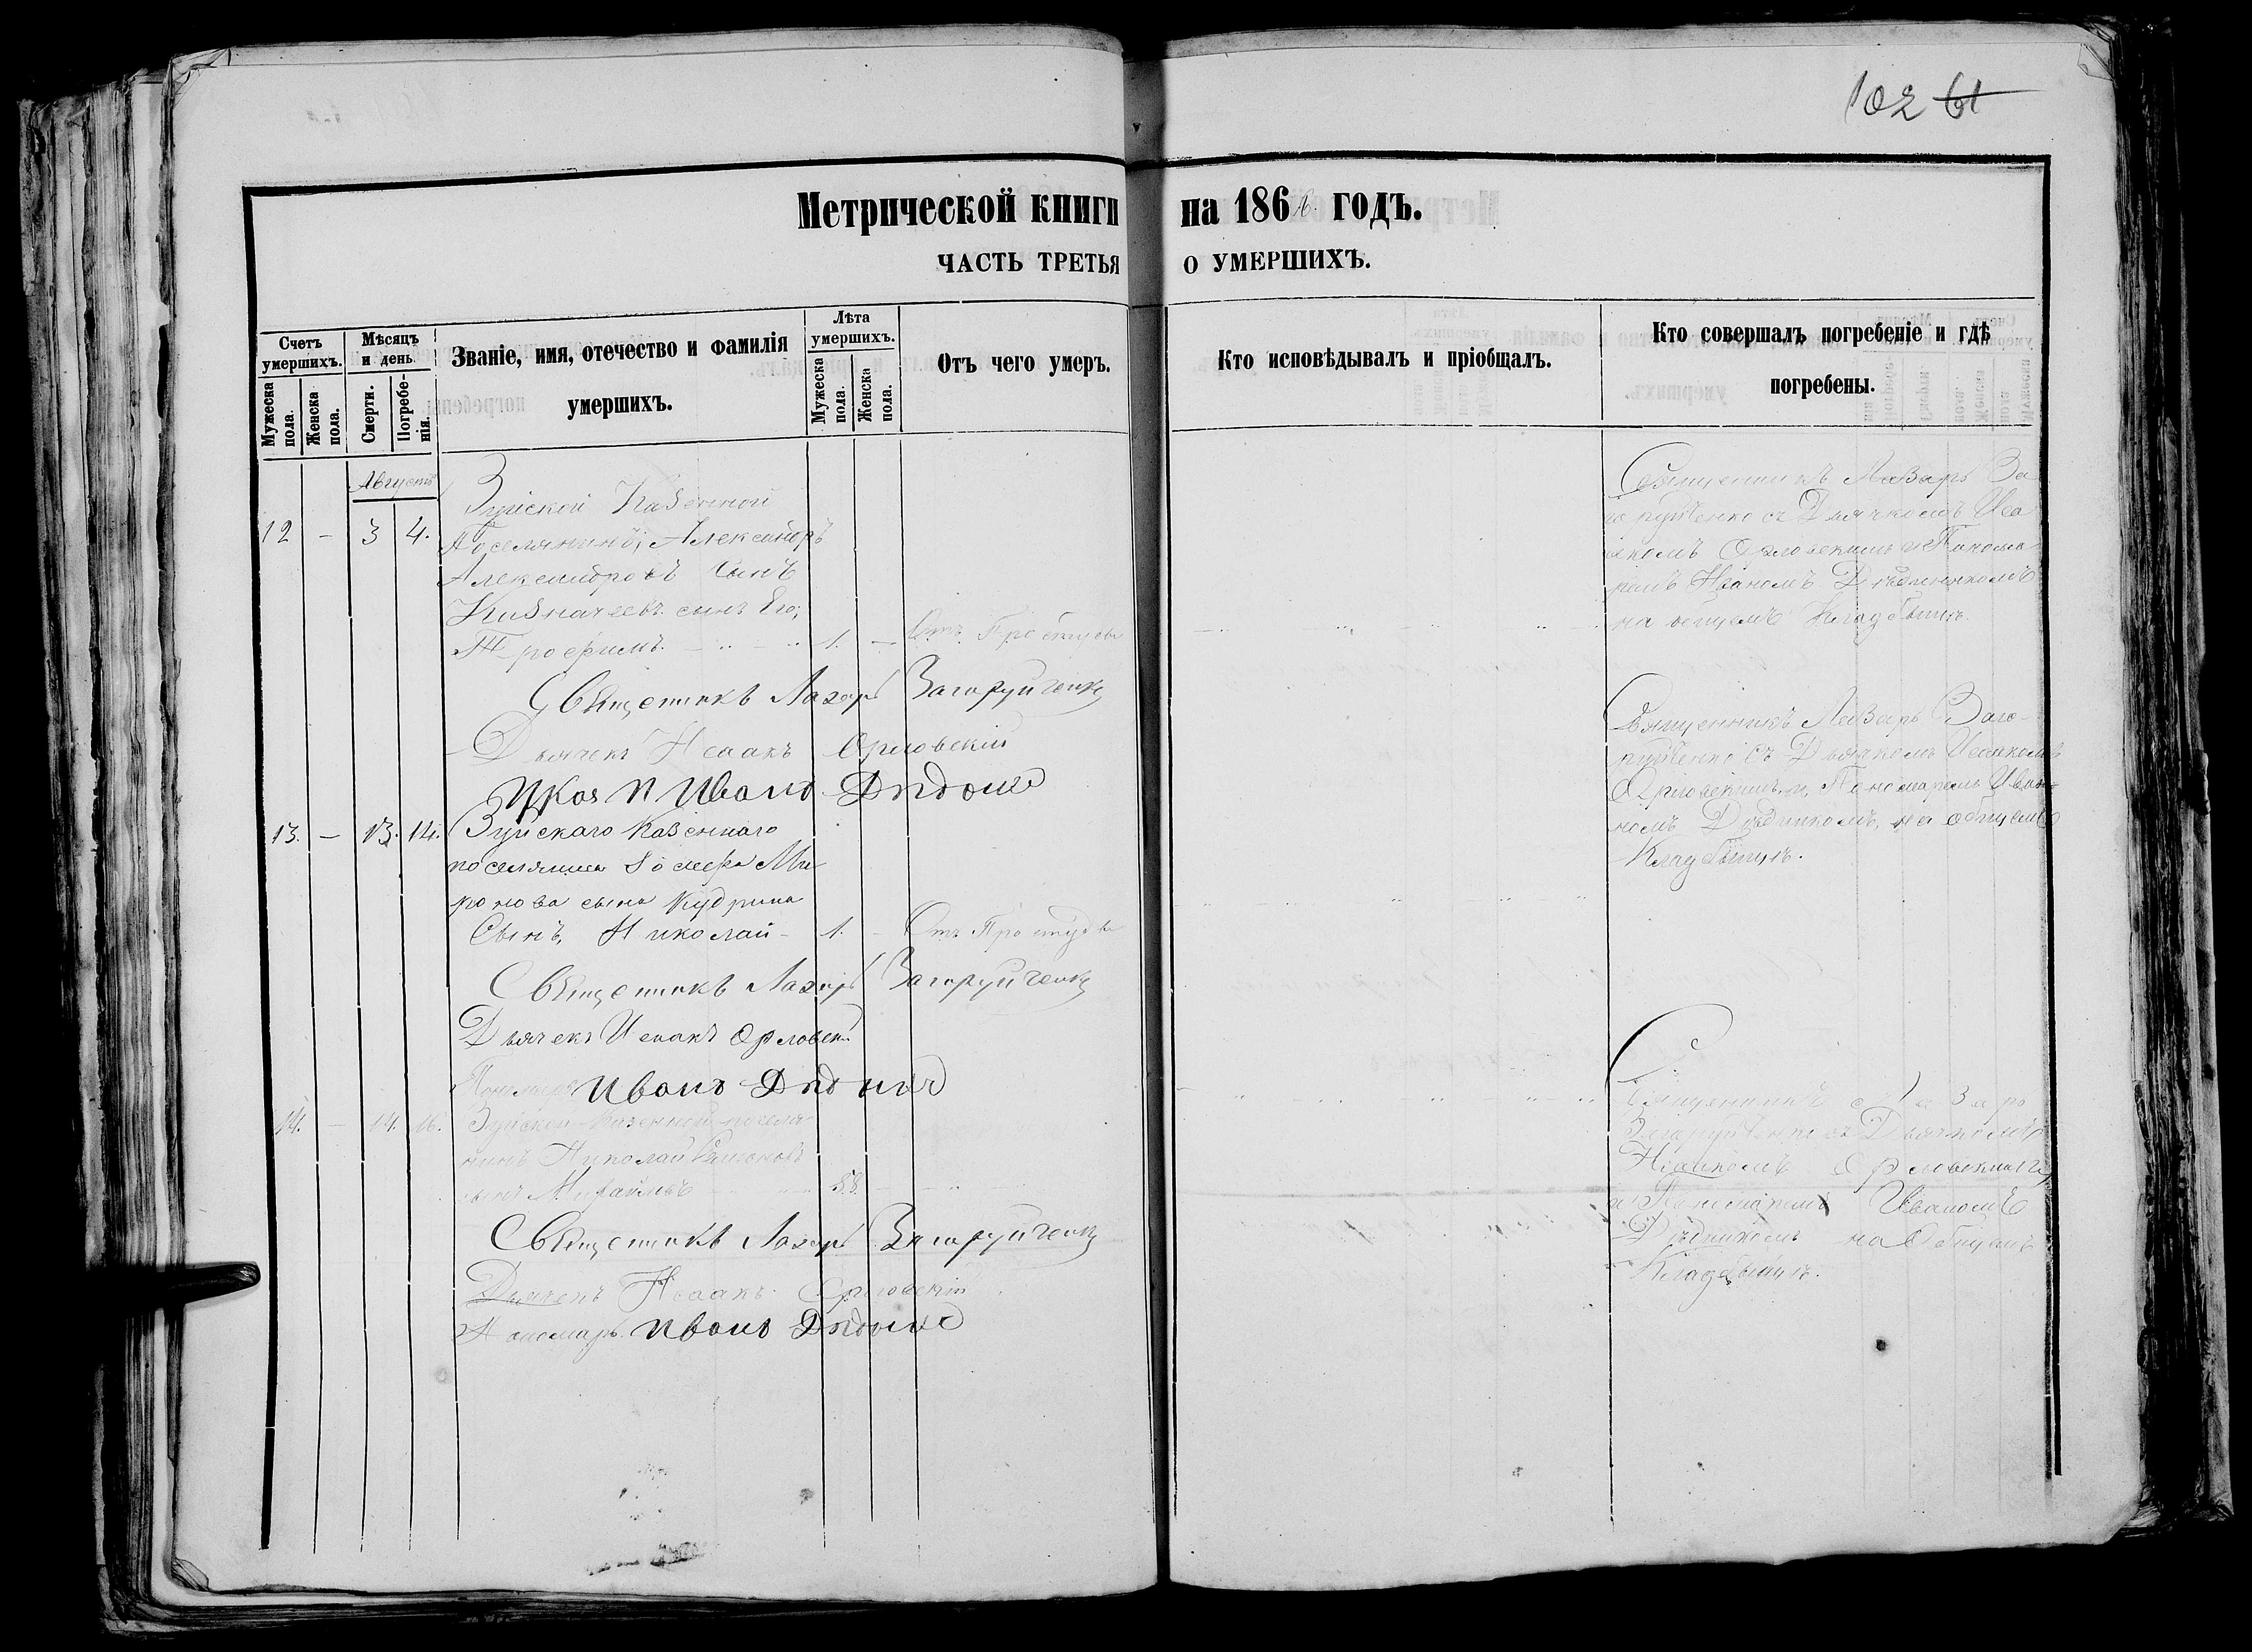 102 61
Метрической книги на 186 годъ.
ЧАСТЬ ТРЕТЬЯ О УМЕРШИХЪ.
Счетъ умершихъ.
Мужеска пола.
Женска пола.
Мѣсяцъ и день
Смерти.
Погребенія.
Званіе, имя, отечество и фамилія
умершихъ.
Лѣта умершихъ.
Мужеска пола.
Женска пола.
Отъ чего умеръ.
Кто исповѣдывалъ и пріобщалъ.
Кто совершалъ погребеніе и гдѣ
погребены.
Августъ
12 - 3 4.
Зуйской Казенной
Поселянинъ, Александръ
Александровъ сынъ
Казначеевъ сынъ Его,
Трофимъ. 1. - Отъ Простуды
Священникъ Лазарь За
горуйченко съ Дьячкомъ Иса
акомъ Орловскимъ и Понома
ремъ Иваномъ
на общемъ Кладбищѣ.
Священникъ Лазарь Загоруйченко
Дьячекъ Исаакъ Орловскій
Иванъ
13. - 13. 14.
Зуйскаго Казеннаго
поселянина Ми
ронова сына Кудрина
Сынъ, Николай - 1. - Отъ Простуды
Священникъ Лазарь Заго-
руйченко съ Дьячкомъ Исаакомъ
Орловскимъ, и Пономаремъ Ива-
номъ на общемъ
Кладбищѣ.
Священникъ Лазарь Загоруйченко
Дьячекъ Исаакъ Орловскій
Пономарь Иванъ
14. - 14. 16.
Зуйской Казенной поселя-
нинъ Николай
сынъ 58.
Священникъ Лазарь
Загоруйченко съ Дьячкомъ
Исаакомъ Орловскимъ
и Пономаремъ Иваномъ
на Общемъ
Кладбищѣ.
Священникъ Лазарь Загоруйченко
Дьячекъ Исаакъ Орловскій
Пономарь Иванъ